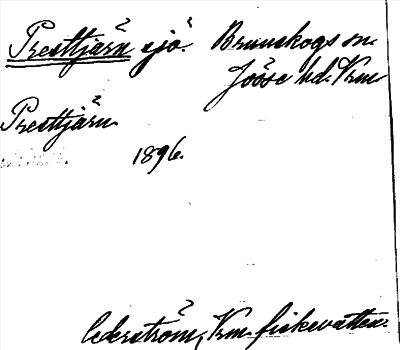 Presttjärn sjö. Brunskogs sn.
Jösse hd. Vrm
Presttjärn
1896.
Cederström, Vrm. fiskevatten.